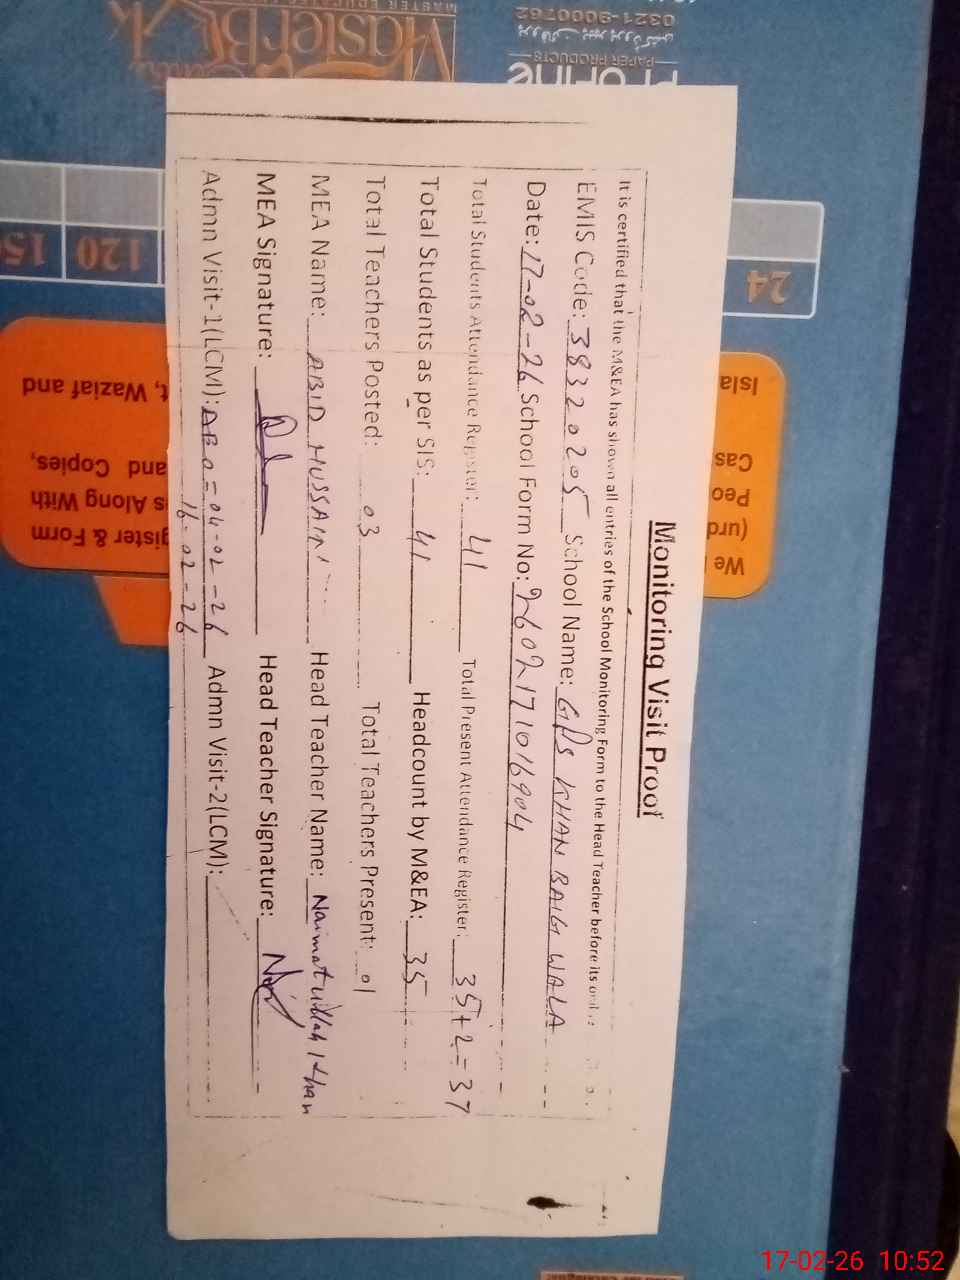 Monitoring Visit Proof
It is certified that the M&EA has shown all entries of the School Monitoring Form to the Head Teacher before its
EMIS Code: 38320205 School Name: GPS KHAN BAIG WALA
Date: 17-02-26 School Form No: 92602171016904
Total Students Attendance Register: 41 Total Present Attendance Register: 35+2=37
Total Students as per SIS: 41 Headcount by M&EA: 35
Total Teachers Posted: 03 Total Teachers Present: 01
MEA Name: ABID HUSSAIN Head Teacher Name: Naimatullah Khan
MEA Signature: Head Teacher Signature:
Admn Visit-1(LCM): AEO=04-02-26 Admn Visit-2(LCM):
16-02-26
MasterBook
ProFine
PAPER PRODUCTS
0321-9000762
24
120
150
Isla
Cas
Peo
(urd
We
t, Wazlaf and
and Copies,
s Along With
gister & Form
17-02-26 10:52